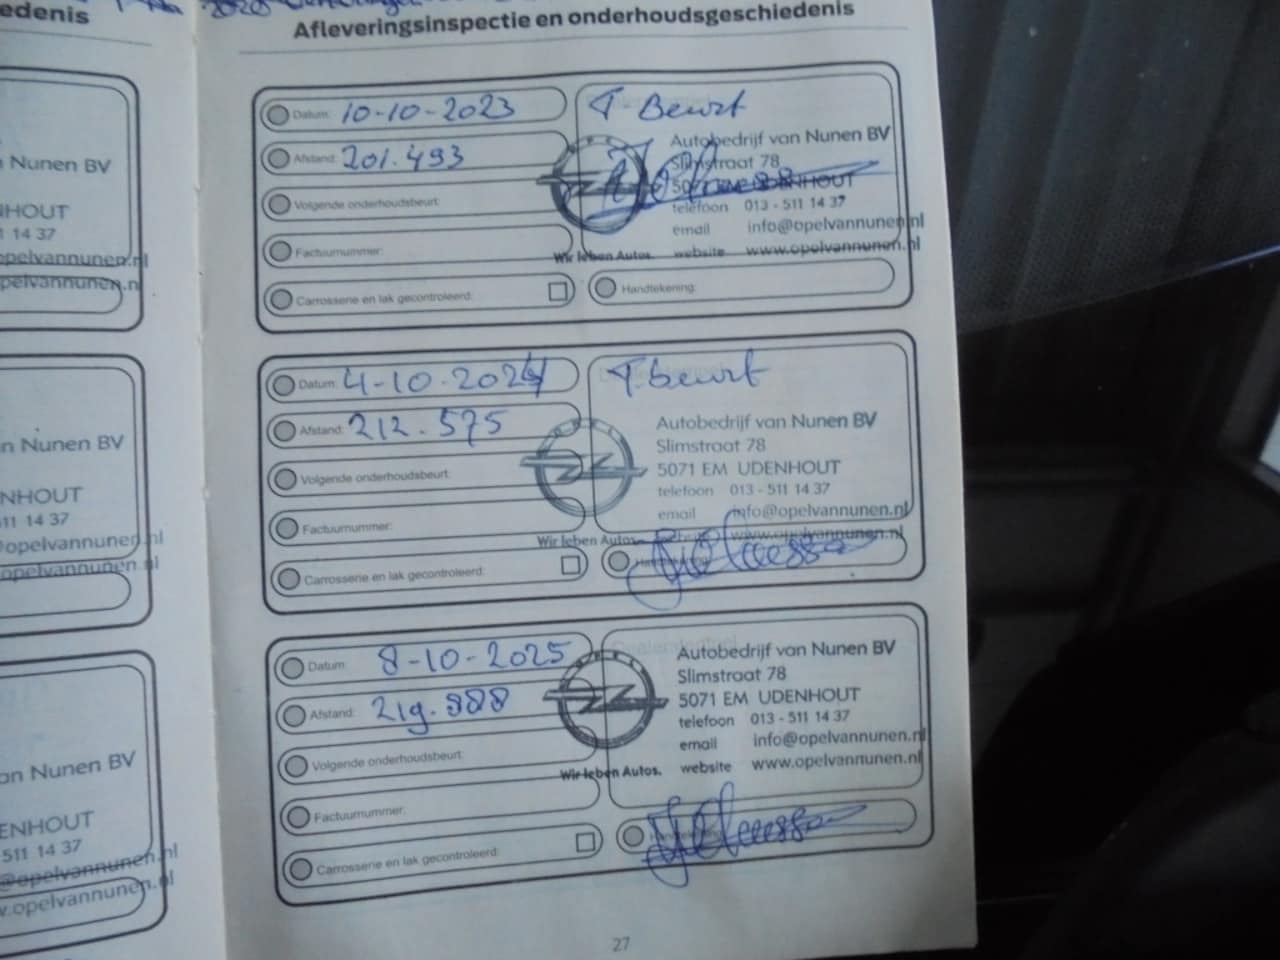 edenis
Nunen BV
NHOUT
1 14 37
opelvannunen.nl
pelvannunen.n
n Nunen BV
NHOUT
11 14 37
@opelvannunen.nl
opelvannunen.nl
an Nunen BV
ENHOUT
511 14 37
@opelvannunen.nl
w.opelvannunen.nl
2020
Afleveringsinspectie en onderhoudsgeschiedenis
Datum: 10-10-2023
Afstand: 201.493
Volgende onderhoudsbeurt:
Factuurnummer:
Carrosserie en lak gecontroleerd:
T Beurt
Autobedrijf van Nunen BV
Slimstraat 78
UDENHOUT
telefoon 013 - 511 14 37
email info@opelvannunen.nl
Wir leben Autos. website www.opelvannunen.nl
Handtekening:
Datum: 4-10-2024
Afstand: 212.575
Volgende onderhoudsbeurt:
Factuurnummer:
Carrosserie en lak gecontroleerd:
T. beurt
Autobedrijf van Nunen BV
Slimstraat 78
5071 EM UDENHOUT
telefoon 013 - 511 14 37
email info@opelvannunen.nl
Wir leben Autos. www.opelvannunen.nl
Datum: 8-10-2025
Afstand: 219.888
Volgende onderhoudsbeurt:
Factuurnummer:
Carrosserie en lak gecontroleerd:
Autobedrijf van Nunen BV
Slimstraat 78
5071 EM UDENHOUT
telefoon 013 - 511 14 37
email info@opelvannunen.nl
Wir leben Autos. website www.opelvannunen.nl
27